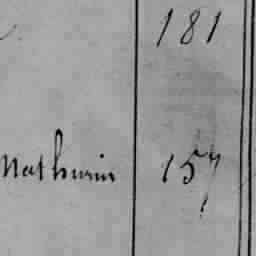 181
Mathurin 157